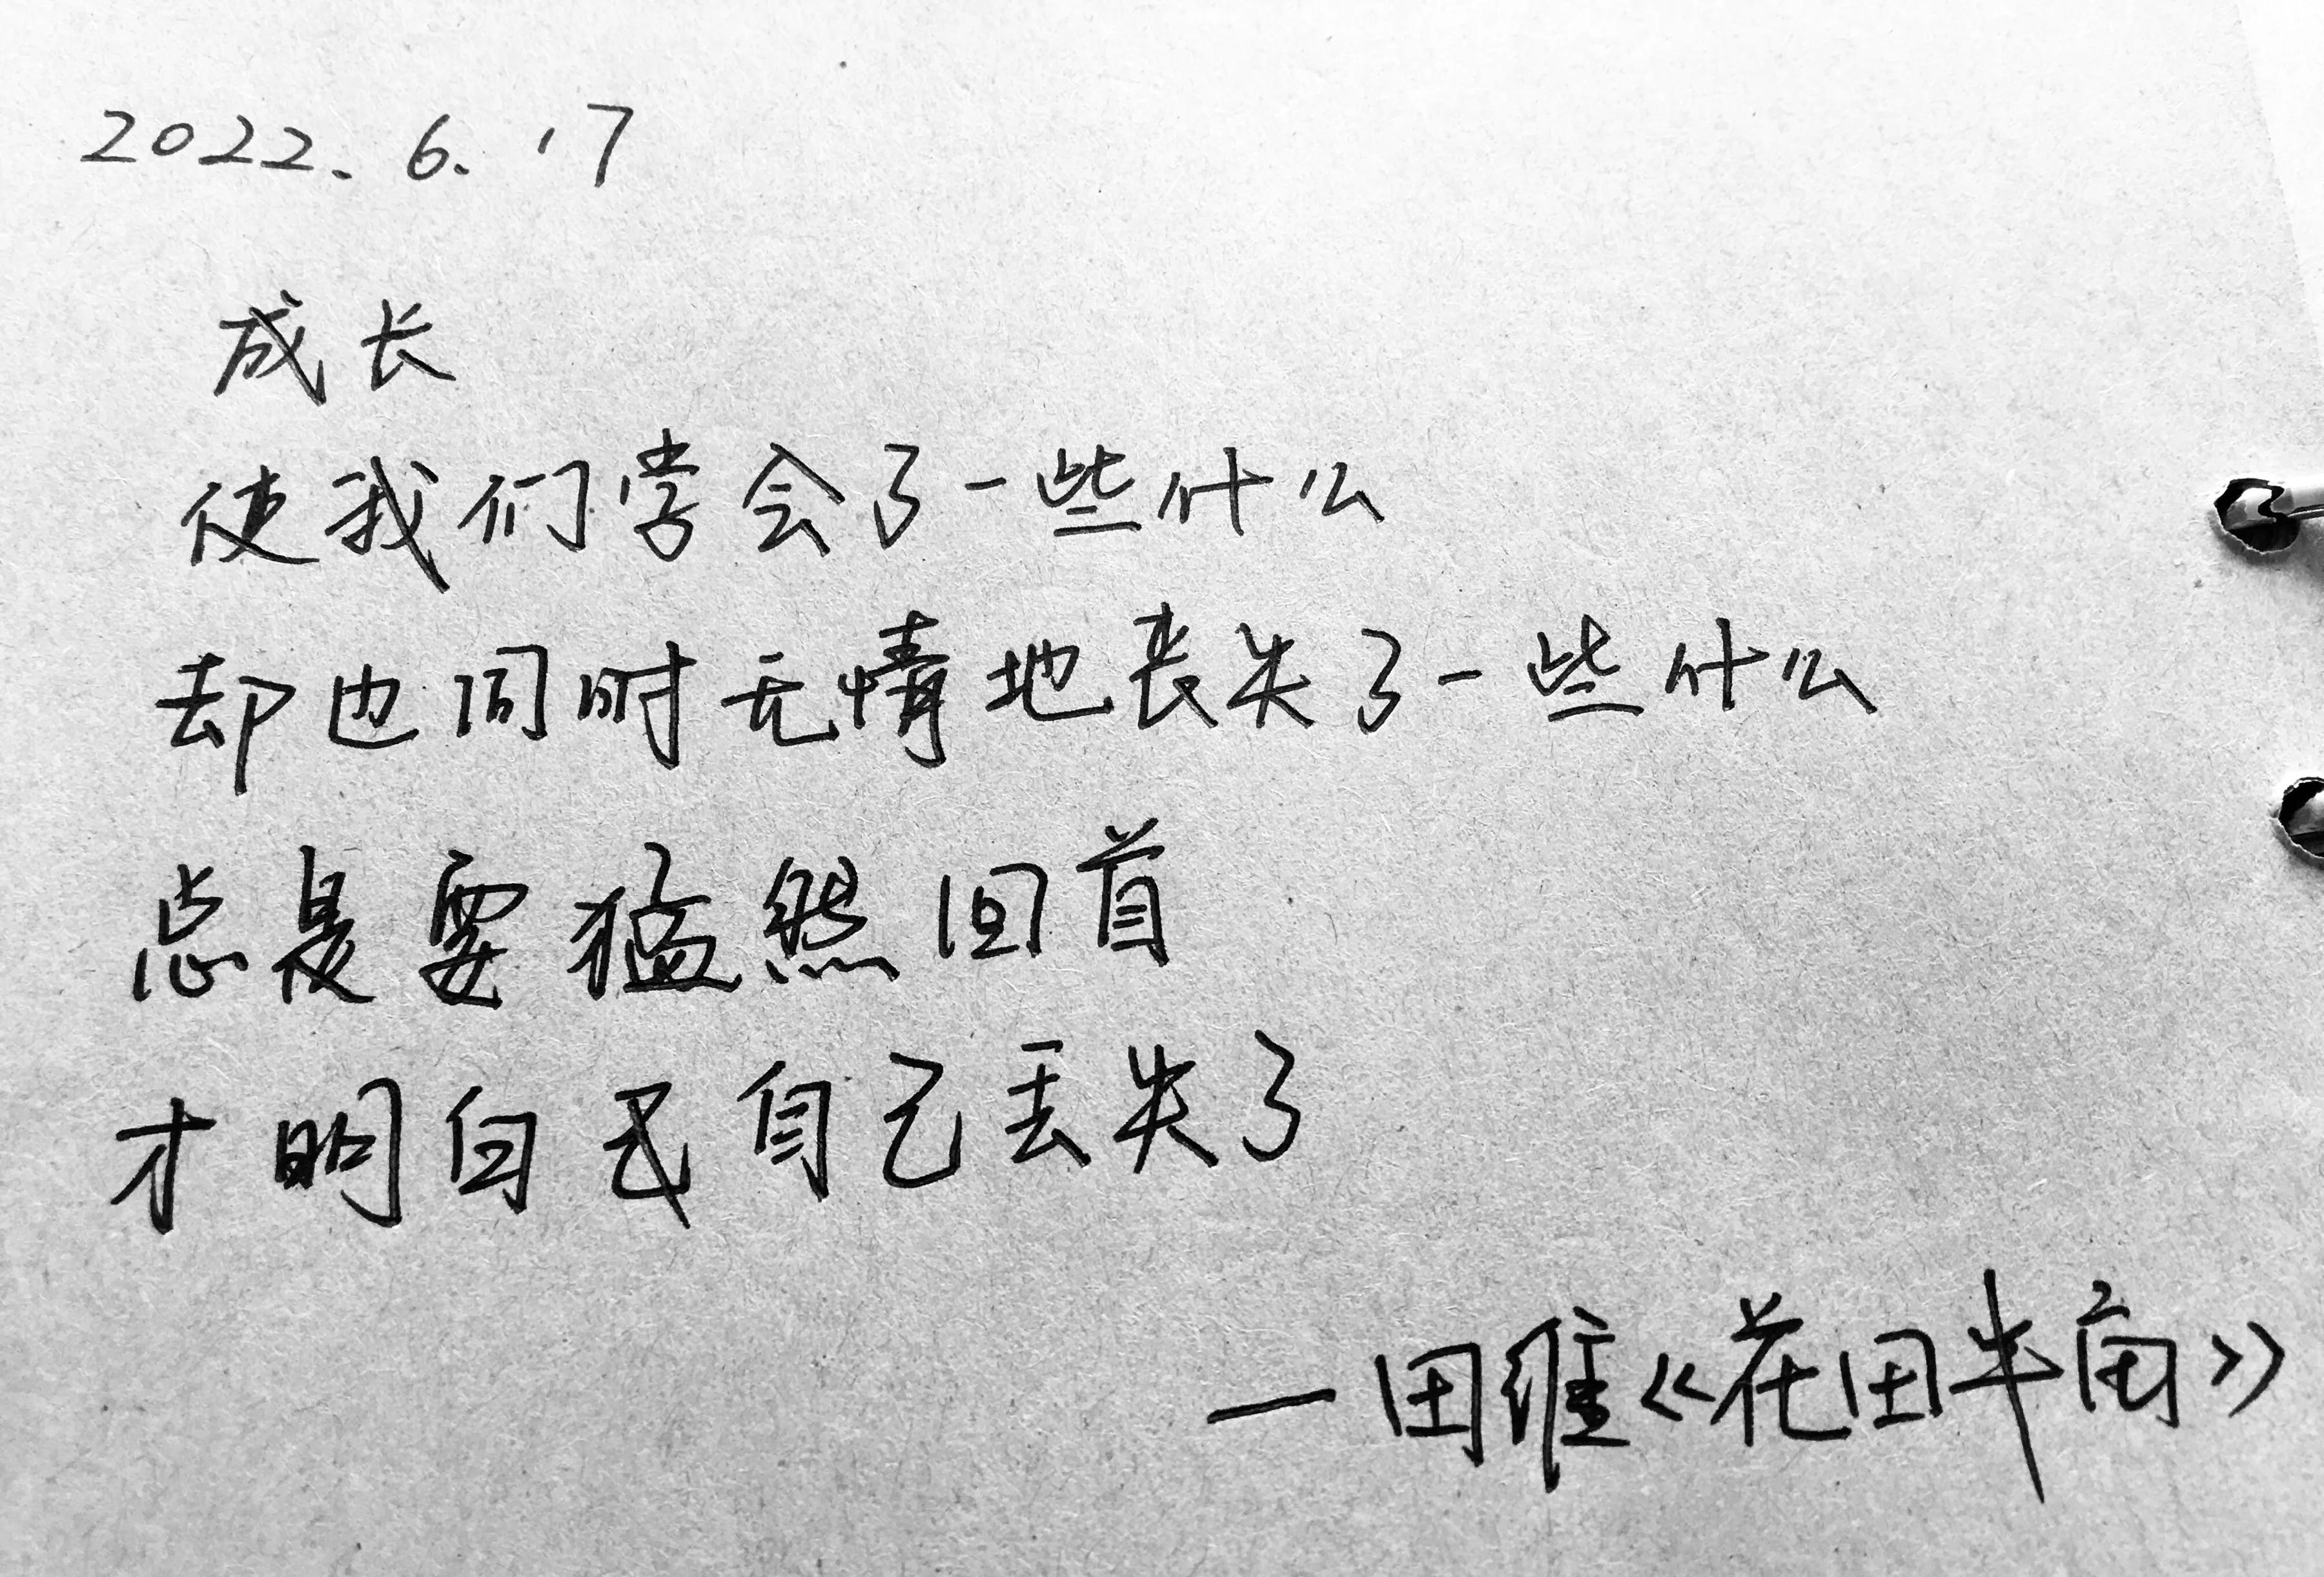 2022.6.17
成长
使我们学会了一些什么
却也同时无情地丧失了一些什么
总是要猛然回首
才明白我自己丢失了
—田维《花田半亩》